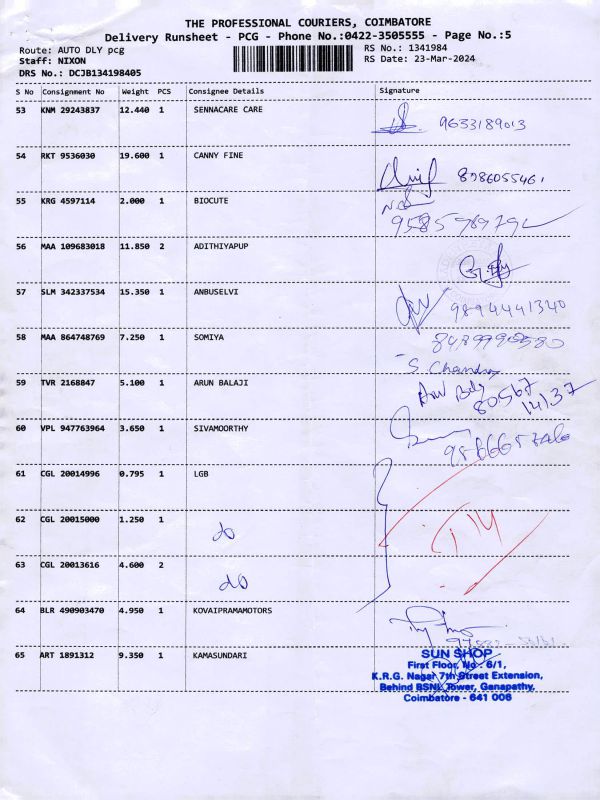 THE PROFESSIONAL COURIERS, COIMBATORE
Delivery Runsheet - PCG - Phone No.:0422-3505555 - Page No.:5
Route: AUTO DLY pcg RS No.: 1341984
Staff: NIXON RS Date: 23-Mar-2024
DRS No.: DCJB134198405
S No Consignment No Weight PCS Consignee Details Signature
53 KNM 29243837 12.440 1 SENNACARE CARE 9633189013
54 RKT 9536030 19.600 1 CANNY FINE 8986055461
55 KRG 4597114 2.000 1 BIOCUTE
56 MAA 109683018 11.850 2 ADITHIYAPUP
57 SLM 342337534 15.350 1 ANBUSELVI 9894441340
58 MAA 864748769 7.250 1 SOMIYA
S Chandra
59 TVR 2168847 5.100 1 ARUN BALAJI 80567
14137
60 VPL 947763964 3.650 1 SIVAMOORTHY
61 CGL 20014996 0.795 1 LGB
62 CGL 20015000 1.250 1 do
63 CGL 20013616 4.600 2 do
64 BLR 490903470 4.950 1 KOVAIPRAMAMOTORS
65 ART 1891312 9.350 1 KAMASUNDARI
SUN SHOP
First Floor, No : 6/1,
K.R.G. Nagar 7th Street Extension,
Behind BSNL Tower, Ganapathy,
Coimbatore - 641 006